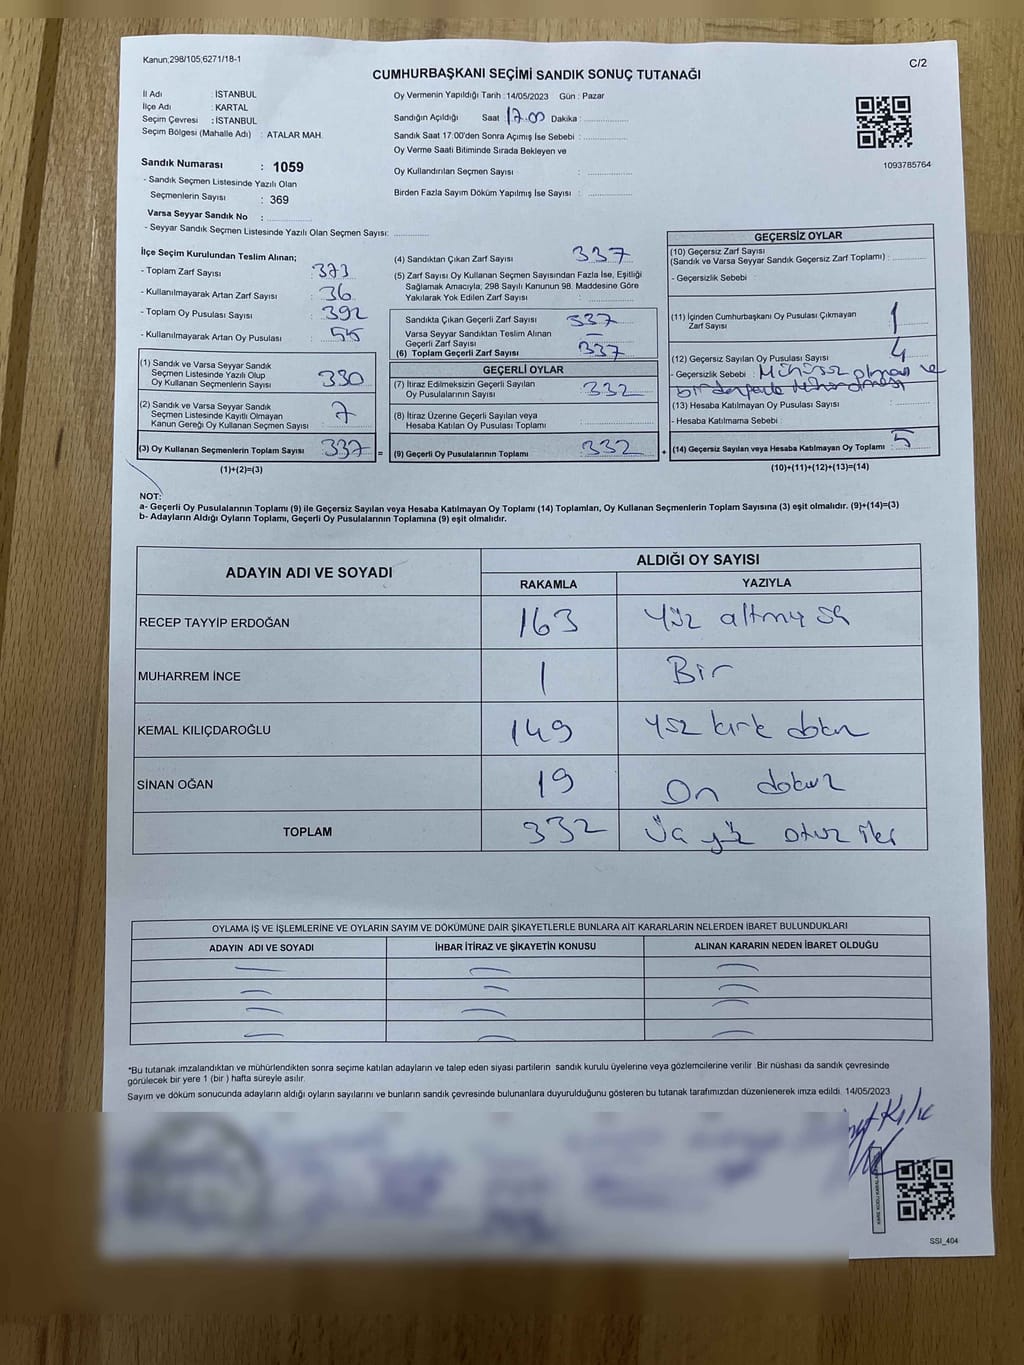 Kanun;298/105,6271/18-1
C/2
CUMHURBAŞKANI SEÇİMİ SANDIK SONUÇ TUTANAĞI
İl Adı : İSTANBUL
İlçe Adı : KARTAL
Seçim Çevresi : İSTANBUL
Seçim Bölgesi (Mahalle Adı) : ATALAR MAH.
Sandık Numarası : 1059
- Sandık Seçmen Listesinde Yazılı Olan
Seçmenlerin Sayısı : 369
Varsa Seyyar Sandık No :
- Seyyar Sandık Seçmen Listesinde Yazılı Olan Seçmen Sayısı:
Oy Vermenin Yapıldığı Tarih :14/05/2023 Gün : Pazar
Sandığın Açıldığı Saat 17.00 Dakika :
Sandık Saat 17:00'den Sonra Açımış İse Sebebi :
Oy Verme Saati Bitiminde Sırada Bekleyen ve
Oy Kullandırılan Seçmen Sayısı :
Birden Fazla Sayım Döküm Yapılmış İse Sayısı :
1093785764
İlçe Seçim Kurulundan Teslim Alınan;
- Toplam Zarf Sayısı : 373
- Kullanılmayarak Artan Zarf Sayısı : 36
- Toplam Oy Pusulası Sayısı : 392
- Kullanılmayarak Artan Oy Pusulası :
(1) Sandık ve Varsa Seyyar Sandık
Seçmen Listesinde Yazılı Olup
Oy Kullanan Seçmenlerin Sayısı : 330
(2) Sandık ve Varsa Seyyar Sandık
Seçmen Listesinde Kayıtlı Olmayan
Kanun Gereği Oy Kullanan Seçmen Sayısı : 7
(3) Oy Kullanan Seçmenlerin Toplam Sayısı : 337 =
(1)+(2)=(3)
(4) Sandıktan Çıkan Zarf Sayısı : 337
(5) Zarf Sayısı Oy Kullanan Seçmen Sayısından Fazla İse, Eşitliği
Sağlamak Amacıyla; 298 Sayılı Kanunun 98. Maddesine Göre
Yakılarak Yok Edilen Zarf Sayısı :
Sandıkta Çıkan Geçerli Zarf Sayısı : 337
Varsa Seyyar Sandıktan Teslim Alınan
Geçerli Zarf Sayısı : –
(6) Toplam Geçerli Zarf Sayısı : 337
GEÇERLİ OYLAR
(7) İtiraz Edilmeksizin Geçerli Sayılan
Oy Pusulalarının Sayısı : 332
(8) İtiraz Üzerine Geçerli Sayılan veya
Hesaba Katılan Oy Pusulası Toplamı :
(9) Geçerli Oy Pusulalarının Toplamı : 332 +
GEÇERSİZ OYLAR
(10) Geçersiz Zarf Sayısı
(Sandık ve Varsa Seyyar Sandık Geçersiz Zarf Toplamı) :
- Geçersizlik Sebebi :
(11) İçinden Cumhurbaşkanı Oy Pusulası Çıkmayan
Zarf Sayısı : 1
(12) Geçersiz Sayılan Oy Pusulası Sayısı : 4
- Geçersizlik Sebebi : Mühürsüz olması ve
birden fazla
(13) Hesaba Katılmayan Oy Pusulası Sayısı :
- Hesaba Katılmama Sebebi :
(14) Geçersiz Sayılan veya Hesaba Katılmayan Oy Toplamı : 5
(10)+(11)+(12)+(13)=(14)
NOT:
a- Geçerli Oy Pusulasının Toplamı (9) ile Geçersiz Sayılan veya Hesaba Katılmayan Oy Toplamı (14) Toplamları, Oy Kullanan Seçmenlerin Toplam Sayısına (3) eşit olmalıdır. (9)+(14)=(3)
b- Adayların Aldığı Oyların Toplamı, Geçerli Oy Pusulalarının Toplamına (9) eşit olmalıdır.
ADAYIN ADI VE SOYADI
ALDIĞI OY SAYISI
RAKAMLA YAZIYLA
RECEP TAYYİP ERDOĞAN 163 Yüz altmış
MUHARREM İNCE 1 Bir
KEMAL KILIÇDAROĞLU 149 Yüz kırk dokuz
SİNAN OĞAN 19 On dokuz
TOPLAM 332 Üç yüz otuz iki
OYLAMA İŞ VE İŞLEMLERİNE VE OYLARIN SAYIM VE DÖKÜMÜNE DAİR ŞİKAYETLERLE BUNLARA AİT KARARLARIN NELERDEN İBARET BULUNDUKLARI
ADAYIN ADI VE SOYADI İHBAR İTİRAZ VE ŞİKAYETİN KONUSU ALINAN KARARIN NEDEN İBARET OLDUĞU
*Bu tutanak imzalandıktan ve mühürlendikten sonra seçime katılan adayların ve talep eden siyasi partilerin sandık kurulu üyelerine veya gözlemcilerine verilir. Bir nüshası da sandık çevresinde
görülecek bir yere 1 (bir ) hafta süreyle asılır.
Sayım ve döküm sonucunda adayların aldığı oyların sayılarını ve bunların sandık çevresinde bulunanlara duyurulduğunu gösteren bu tutanak tarafımızdan düzenlenerek imza edildi. 14/05/2023
SSI_404